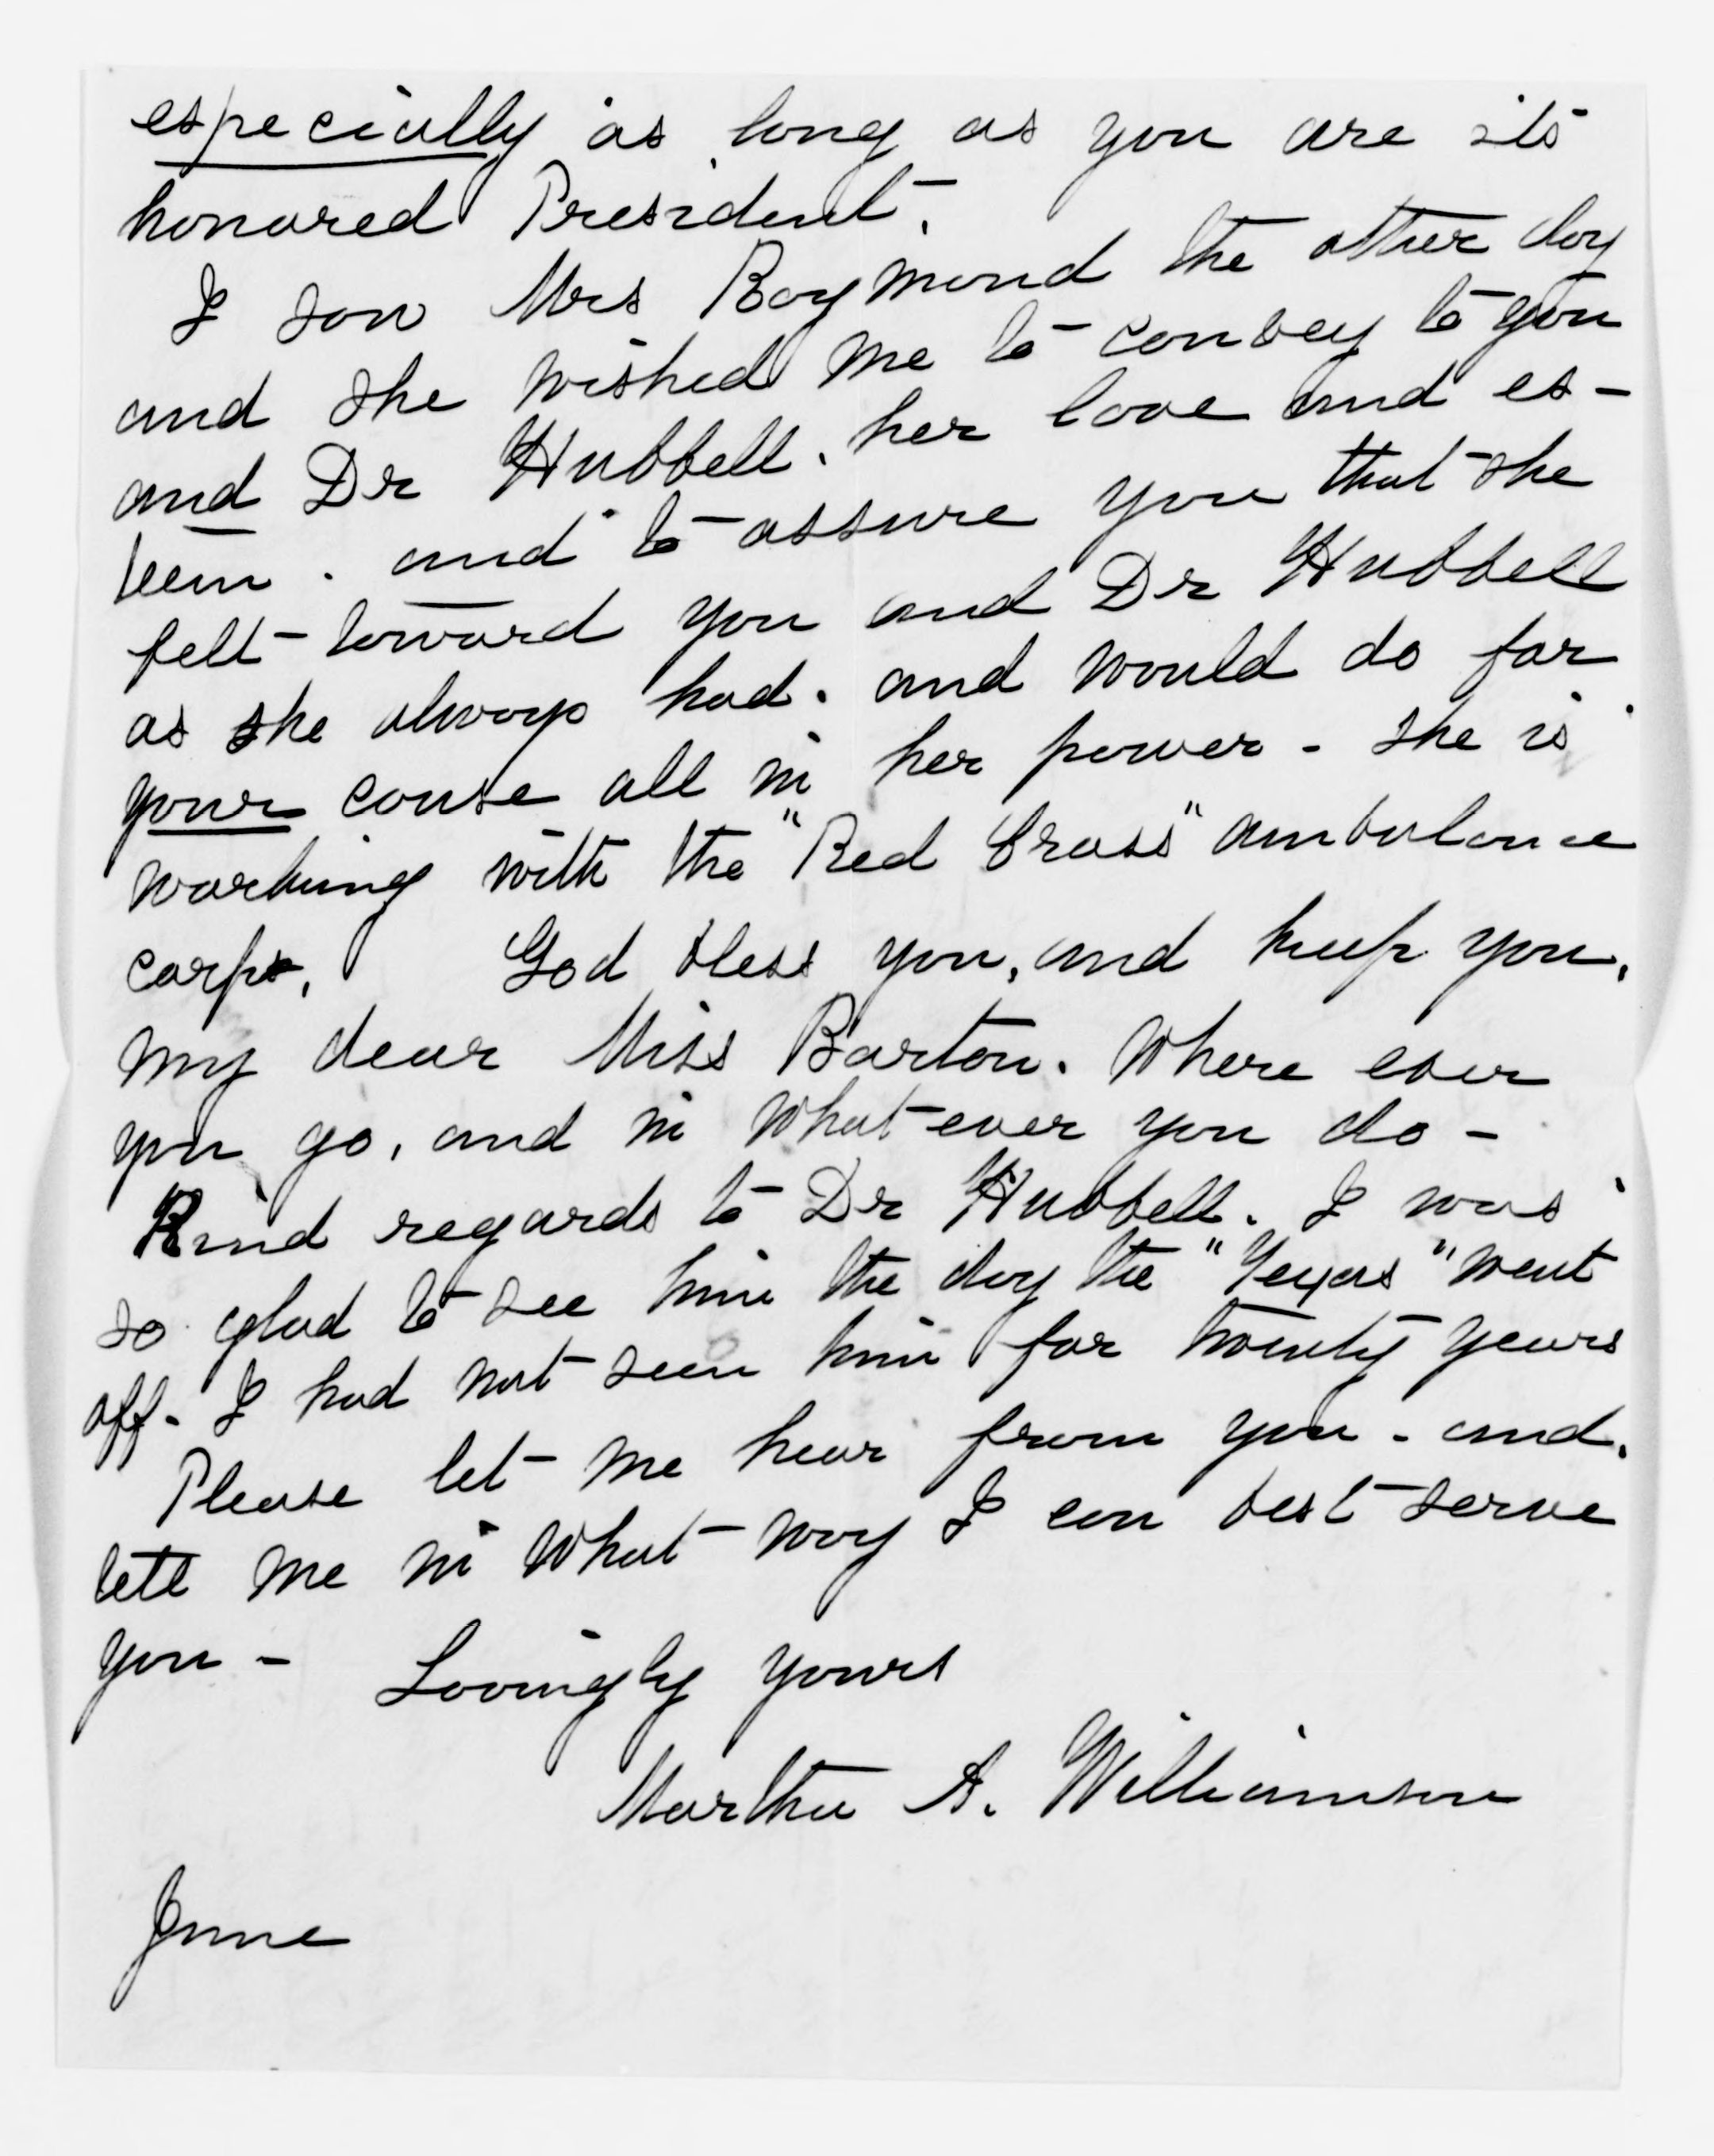 especially as long as you are its
honored President.
I saw Mrs Raymond the other day
and she wished me to convey to you
and Dr Hubbell. her love and es-
teem. and to assure you that she
felt toward you and Dr Hubbell
as she always had. and would do for
your cause all in her power - She is
working with the "Red Cross" ambulance
corps. God bless you, and keep you,
my dear Miss Barton. Where ever
you go, and in what ever you do -
Kind regards to Dr Hubbell. I was
so glad to see him the day the "Texas" went
off - I had not seen him for twenty years
Please let me hear from you - and.
tell me in what way I can best serve
you - Lovingly yours
Martha A. Williamson
June